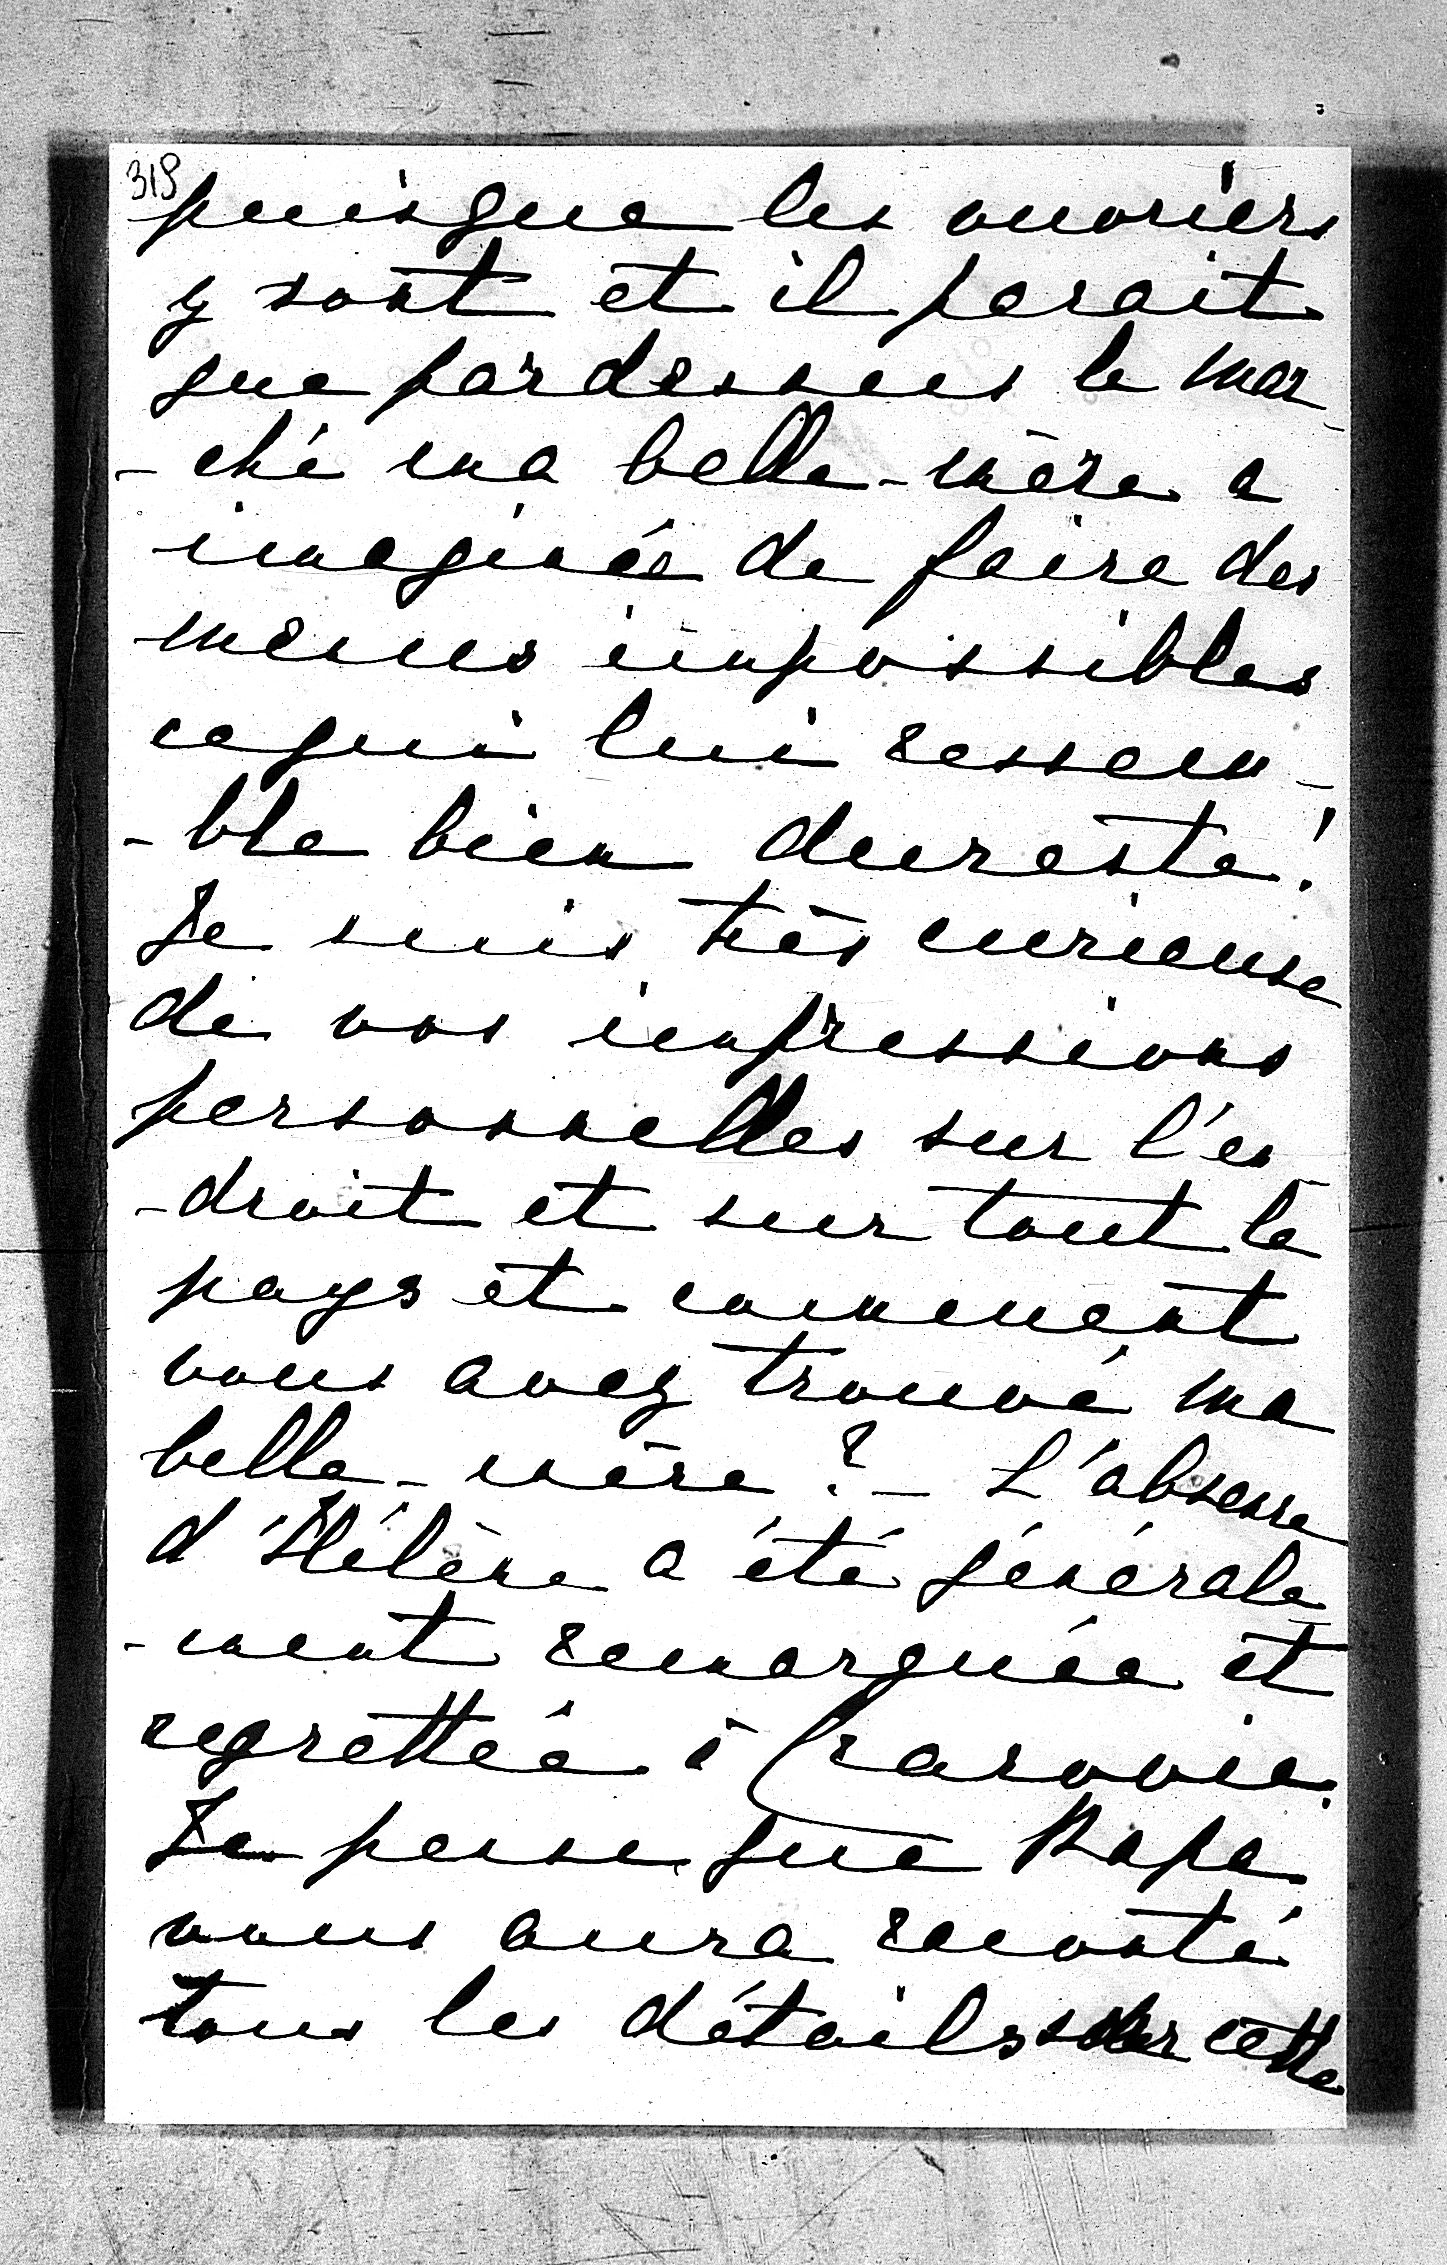 318
puisque les ouvriers
y sont et il parait
que pardessus le mar
- ché ma belle-mère a
imaginée de faire des
menus impossibles
ce qui lui ressem-
- ble bien dureste!
Je suis très curieuse
de vos impressions
personnelles sur l'en
- droit et sur tout le
pays et comment
vous avez trouvé ma
belle-mère? - L'absence
d'Hélène a été générale
- ment remarquée et
regrettée à Cracovie.
Je pense que Papa
vous aura raconté
tous les détails sur cette